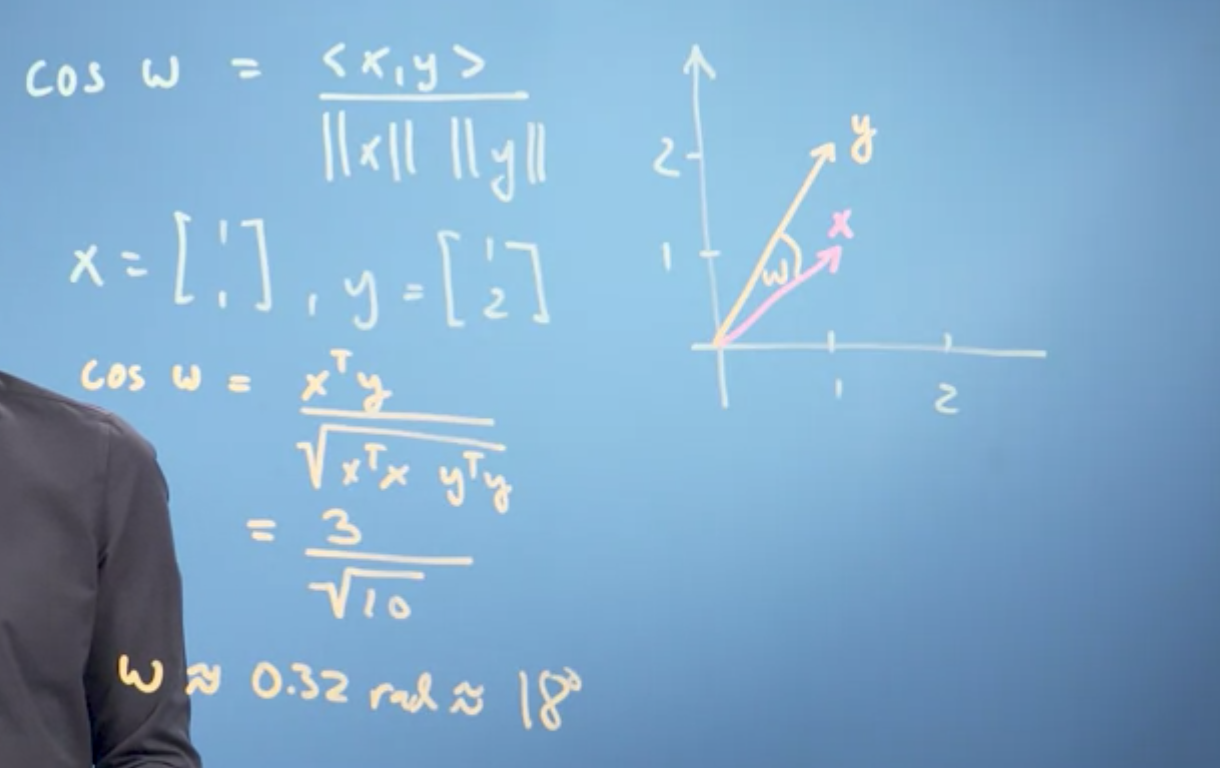 cos ω = <x,y> / ||x|| ||y||
x = [1 1], y = [1 2]
cos ω = xᵀy / √(xᵀx yᵀy)
= 3 / √10
ω ≈ 0.32 rad ≈ 18°
2
y
x
1
ω
1 2